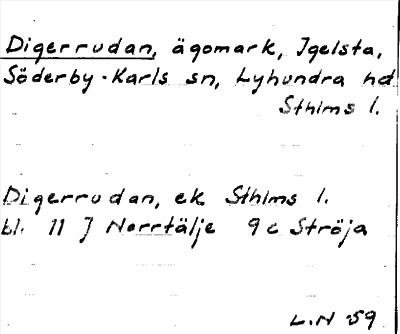 Digerrudan, ägomark, Igelsta,
Söderby-Karls sn, Lyhundra hd
Sthlms l.
Digerrudan, ek Sthlms l.
bl. 11 J Norrtälje 9c Ströja
L.N 59